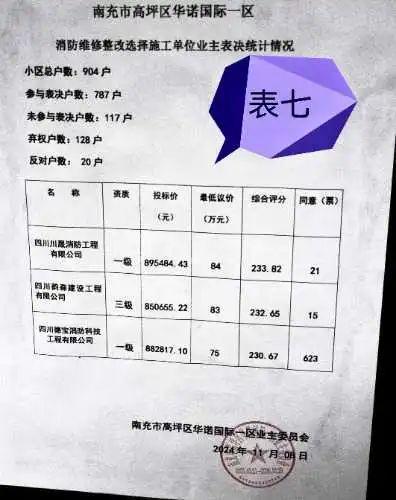 南充市高坪区华诺国际一区
消防维修整改选择施工单位业主表决统计情况
小区总户数：904 户
参与表决户数：787 户
未参与表决户数：117 户
弃权户数：128 户
反对户数： 20 户
表七
名 称 资质 投标价（元） 最低议价（万元） 综合评分 同意（票）
四川川晟消防工程有限公司 一级 895484.43 84 233.82 21
四川韵森建设工程有限公司 三级 850655.22 83 232.65 15
四川德宝消防科技工程有限公司 一级 882817.10 75 230.67 623
南充市高坪区华诺国际一区业主委员会
2024 年 11 月 08 日